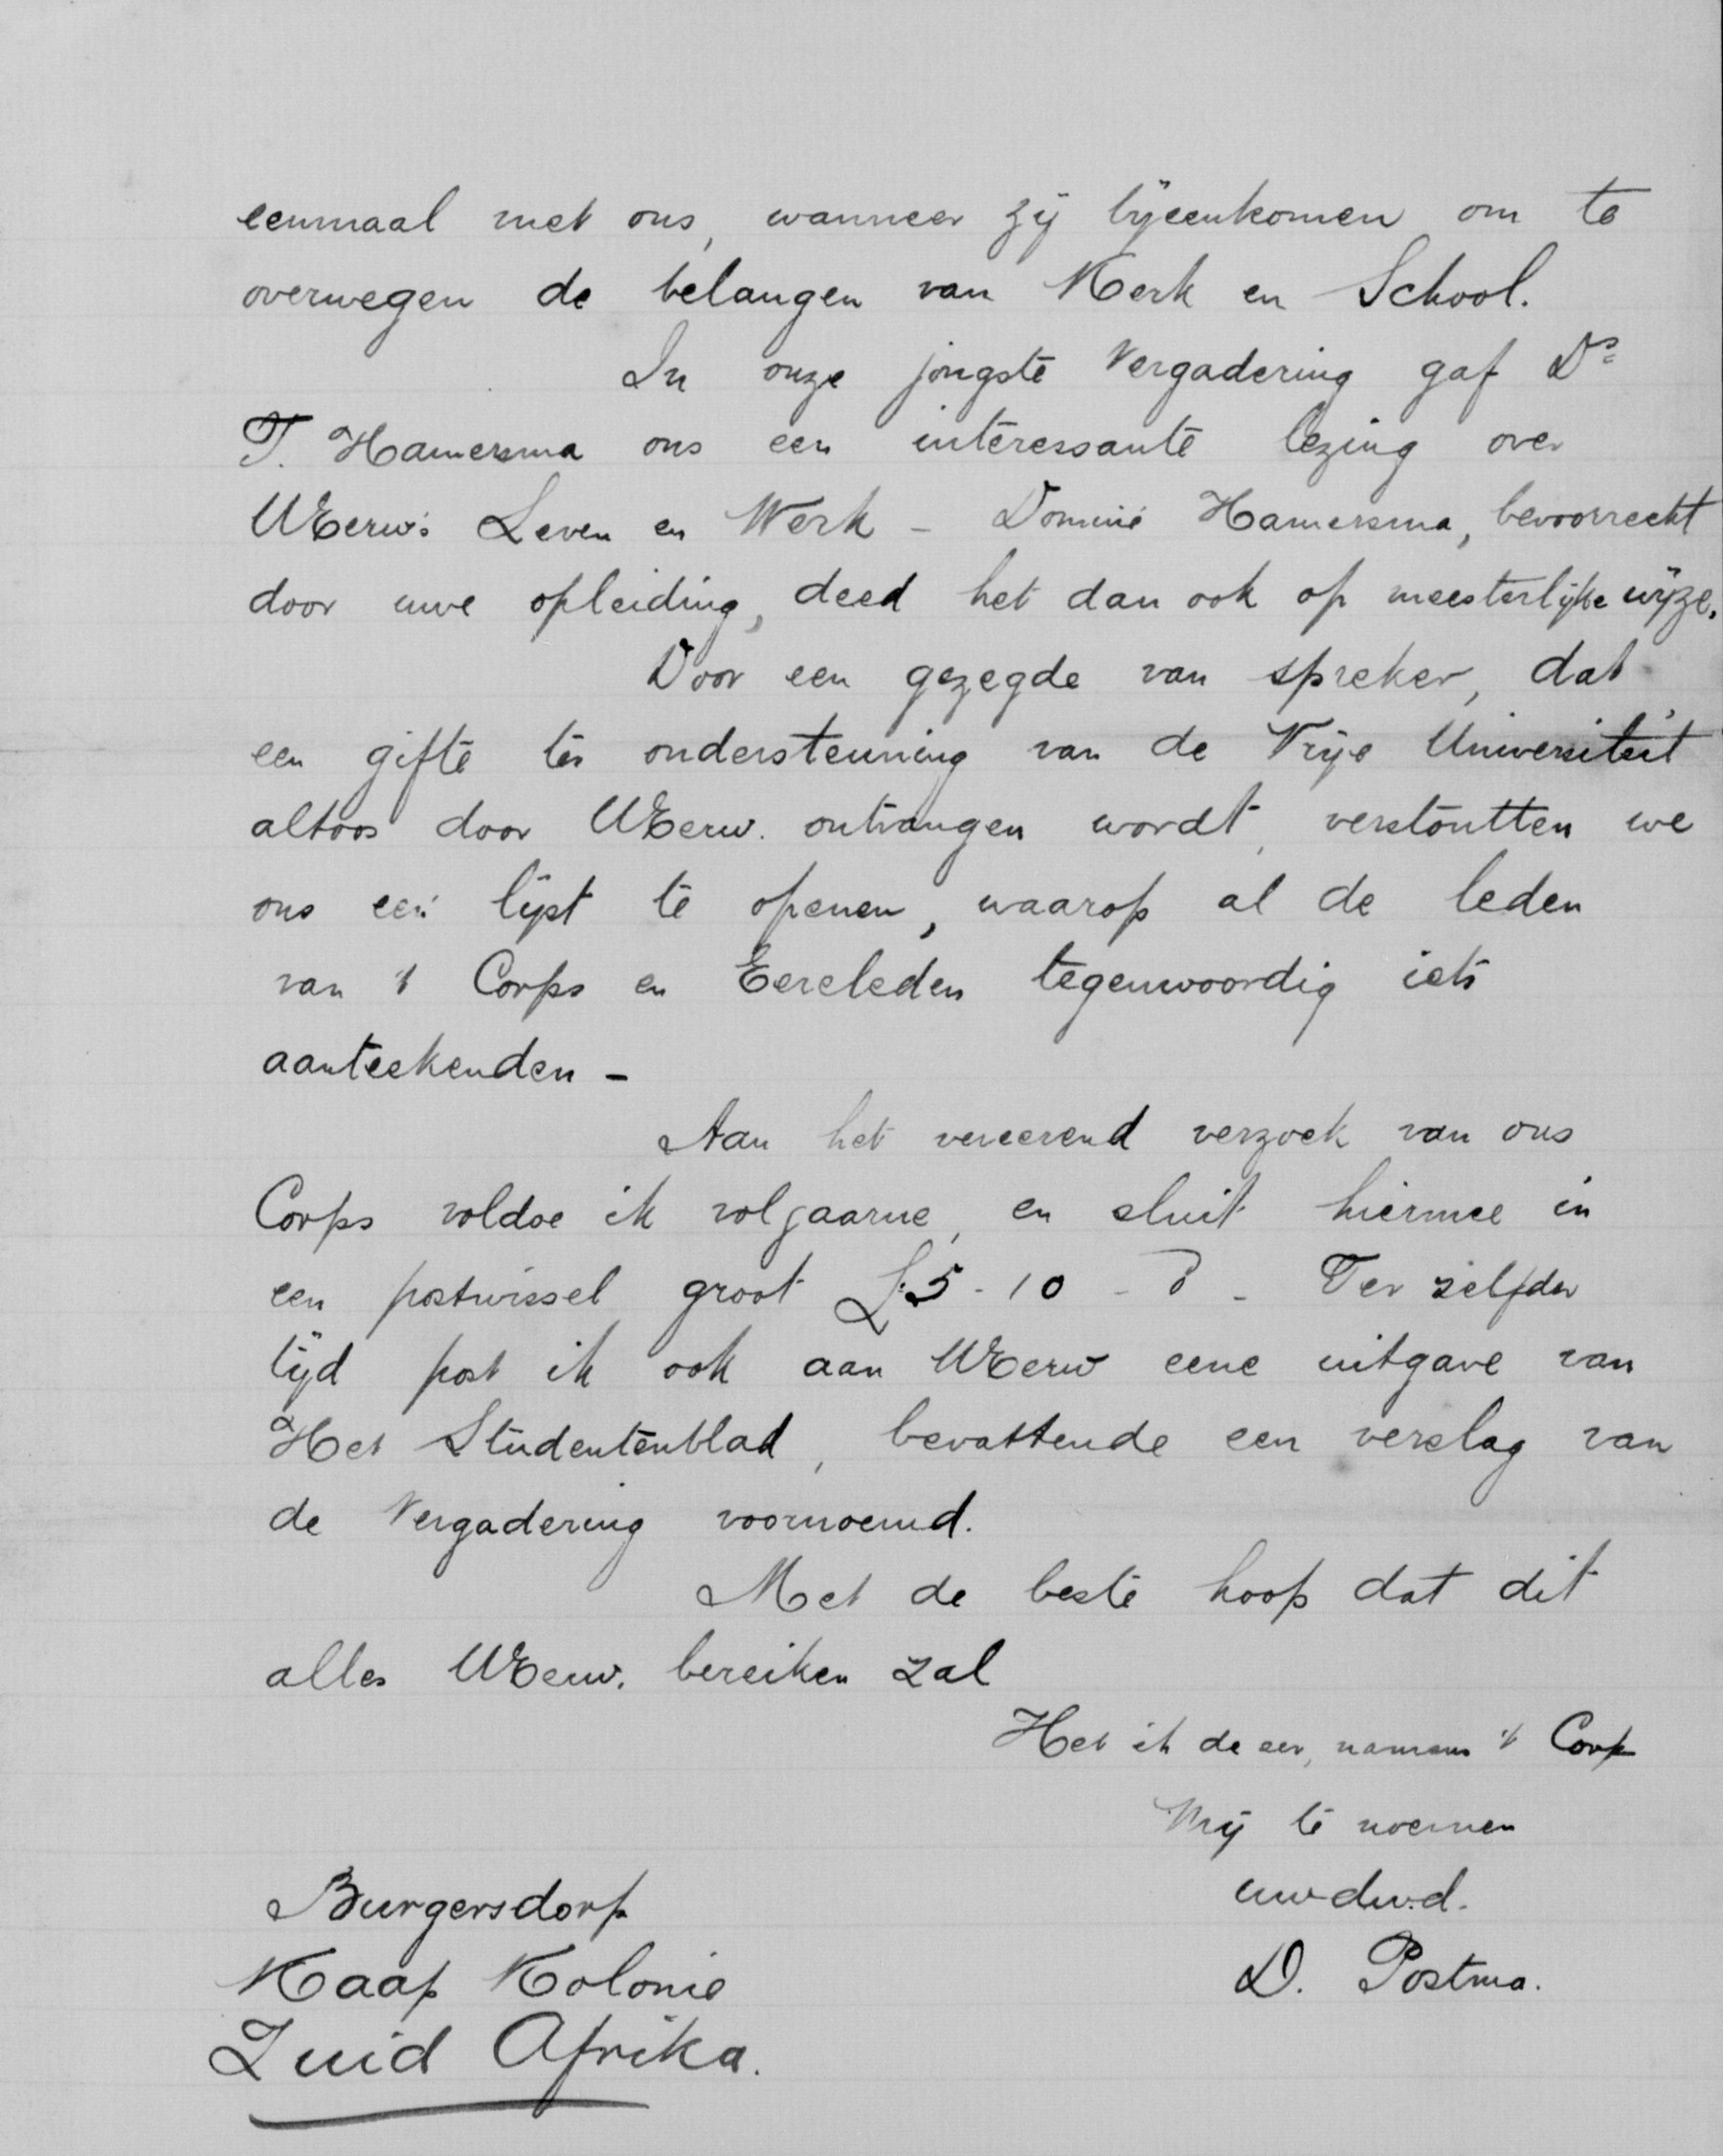 eenmaal met ons, wanneer zij bijeenkomen om te
overwegen de belangen van Kerk en School.
In onze jongste Vergadering gaf Ds
T. Hamersma ons een interessante lezing over
UEerw's Leven en Werk – Dominé Hamersma, bevoorrecht
door uwe opleiding, deed het dan ook op meesterlijke wijze.
Door een gezegde van spreker, dat
een gifte ter ondersteuning van de Vrije Universiteit
altoos door UEerw. ontvangen wordt, verstoutten we
ons een lijst te openen, waarop al de leden
van 't Corps en Eereleden tegenwoordig iets
aanteekenden –
Aan het vereerend verzoek van ons
Corps voldoe ik volgaarne, en sluit hiermee in
een postwissel groot £5 - 10 - 0 - Ter zelfder
tijd post ik ook aan UEerw eene uitgave van
Het Studentenblad, bevattende een verslag van
de Vergadering voornoemd.
Met de beste hoop dat dit
alles UEerw. bereiken zal
Heb ik de eer, namens 't Corps
Mij te noemen
uw dw.d.
D. Postma.
Burgersdorp
Kaap Kolonie
Zuid Afrika.